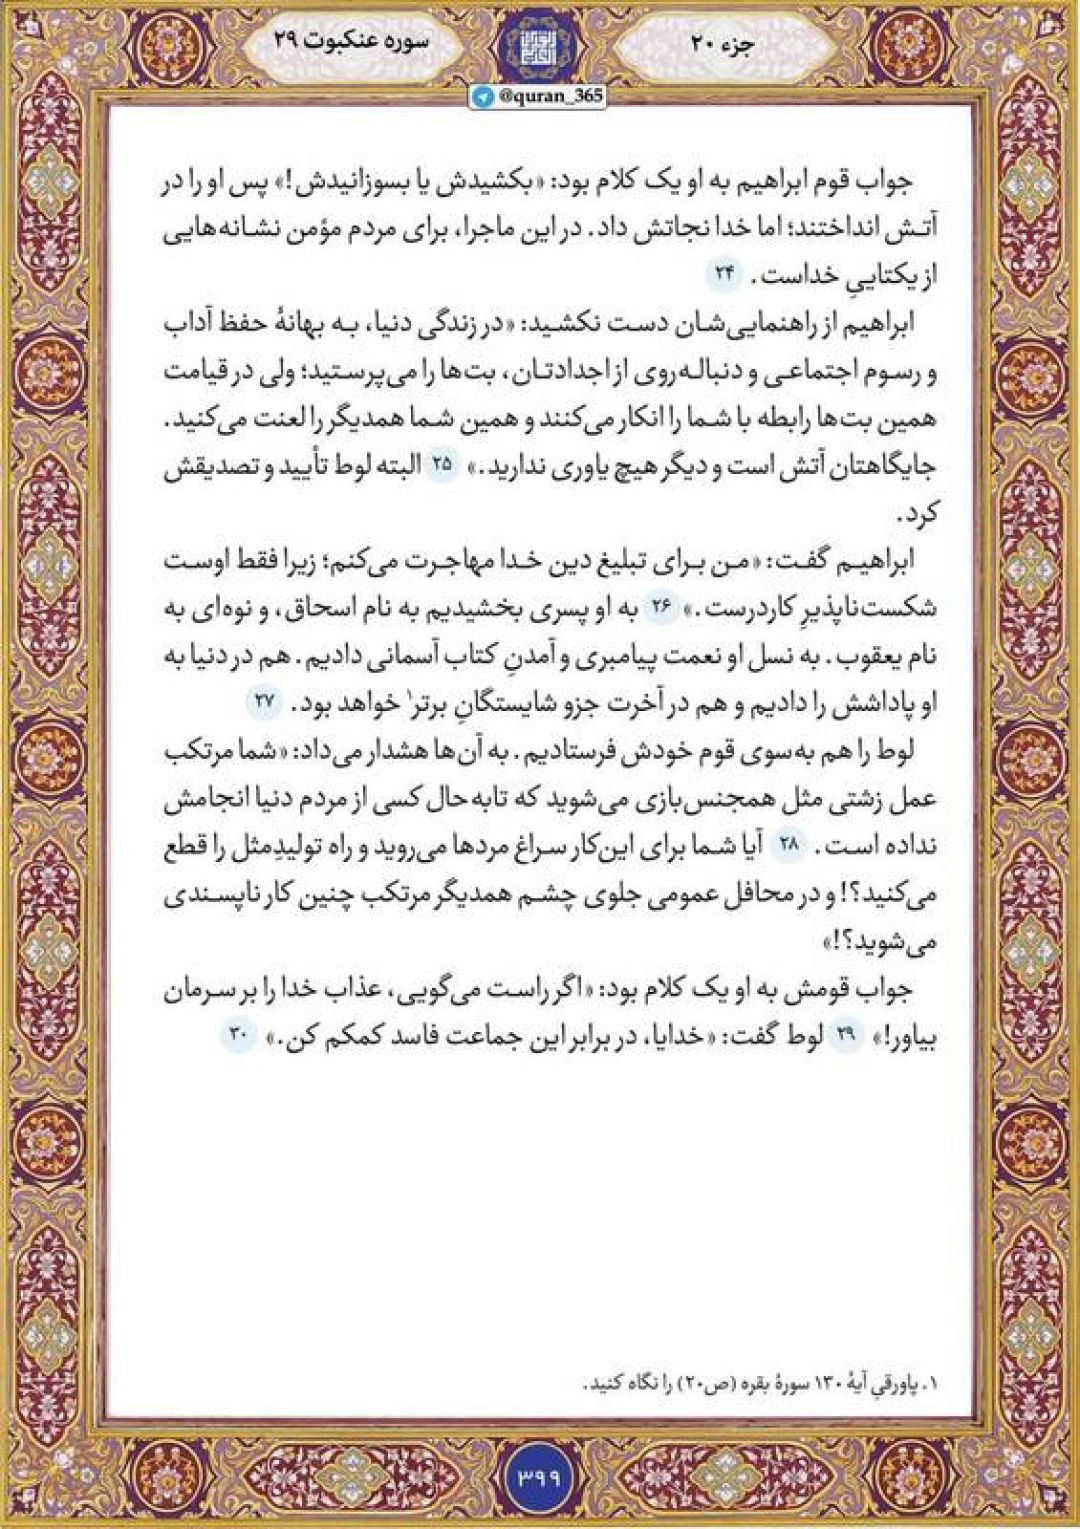 جزء ۲۰
سوره عنکبوت ۲۹
@quran_365
جواب قوم ابراهیم به او یک کلام بود: «بکشیدش یا بسوزانیدش!» پس او را در
آتش انداختند؛ اما خدا نجاتش داد. در این ماجرا، برای مردم مؤمن نشانه‌هایی
از یکتاییِ خداست. ۲۴
ابراهیم از راهنمایی‌شان دست نکشید: «در زندگی دنیا، به بهانهٔ حفظ آداب
و رسوم اجتماعی و دنباله‌روی از اجدادتان، بت‌ها را می‌پرستید؛ ولی در قیامت
همین بت‌ها رابطه با شما را انکار می‌کنند و همین شما همدیگر را لعنت می‌کنید.
جایگاهتان آتش است و دیگر هیچ یاوری ندارید.» ۲۵ البته لوط تأیید و تصدیقش
کرد.
ابراهیم گفت: «من برای تبلیغ دین خدا مهاجرت می‌کنم؛ زیرا فقط اوست
شکست‌ناپذیرِ کاردرست.» ۲۶ به او پسری بخشیدیم به نام اسحاق، و نوه‌ای به
نام یعقوب. به نسل او نعمت پیامبری و آمدنِ کتاب آسمانی دادیم. هم در دنیا به
او پاداشش را دادیم و هم در آخرت جزو شایستگانِ برتر۱ خواهد بود. ۲۷
لوط را هم به‌سوی قوم خودش فرستادیم. به آن‌ها هشدار می‌داد: «شما مرتکب
عمل زشتی مثل همجنس‌بازی می‌شوید که تابه‌حال کسی از مردم دنیا انجامش
نداده است. ۲۸ آیا شما برای این‌کار سراغ مردها می‌روید و راه تولیدِمثل را قطع
می‌کنید؟! و در محافل عمومی جلوی چشم همدیگر مرتکب چنین کار ناپسندی
می‌شوید؟!»
جواب قومش به او یک کلام بود: «اگر راست می‌گویی، عذاب خدا را بر سرمان
بیاور!» ۲۹ لوط گفت: «خدایا، در برابر این جماعت فاسد کمکم کن.» ۳۰
۱. پاورقیِ آیهٔ ۱۳۰ سورهٔ بقره (ص۲۰) را نگاه کنید.
۳۹۹